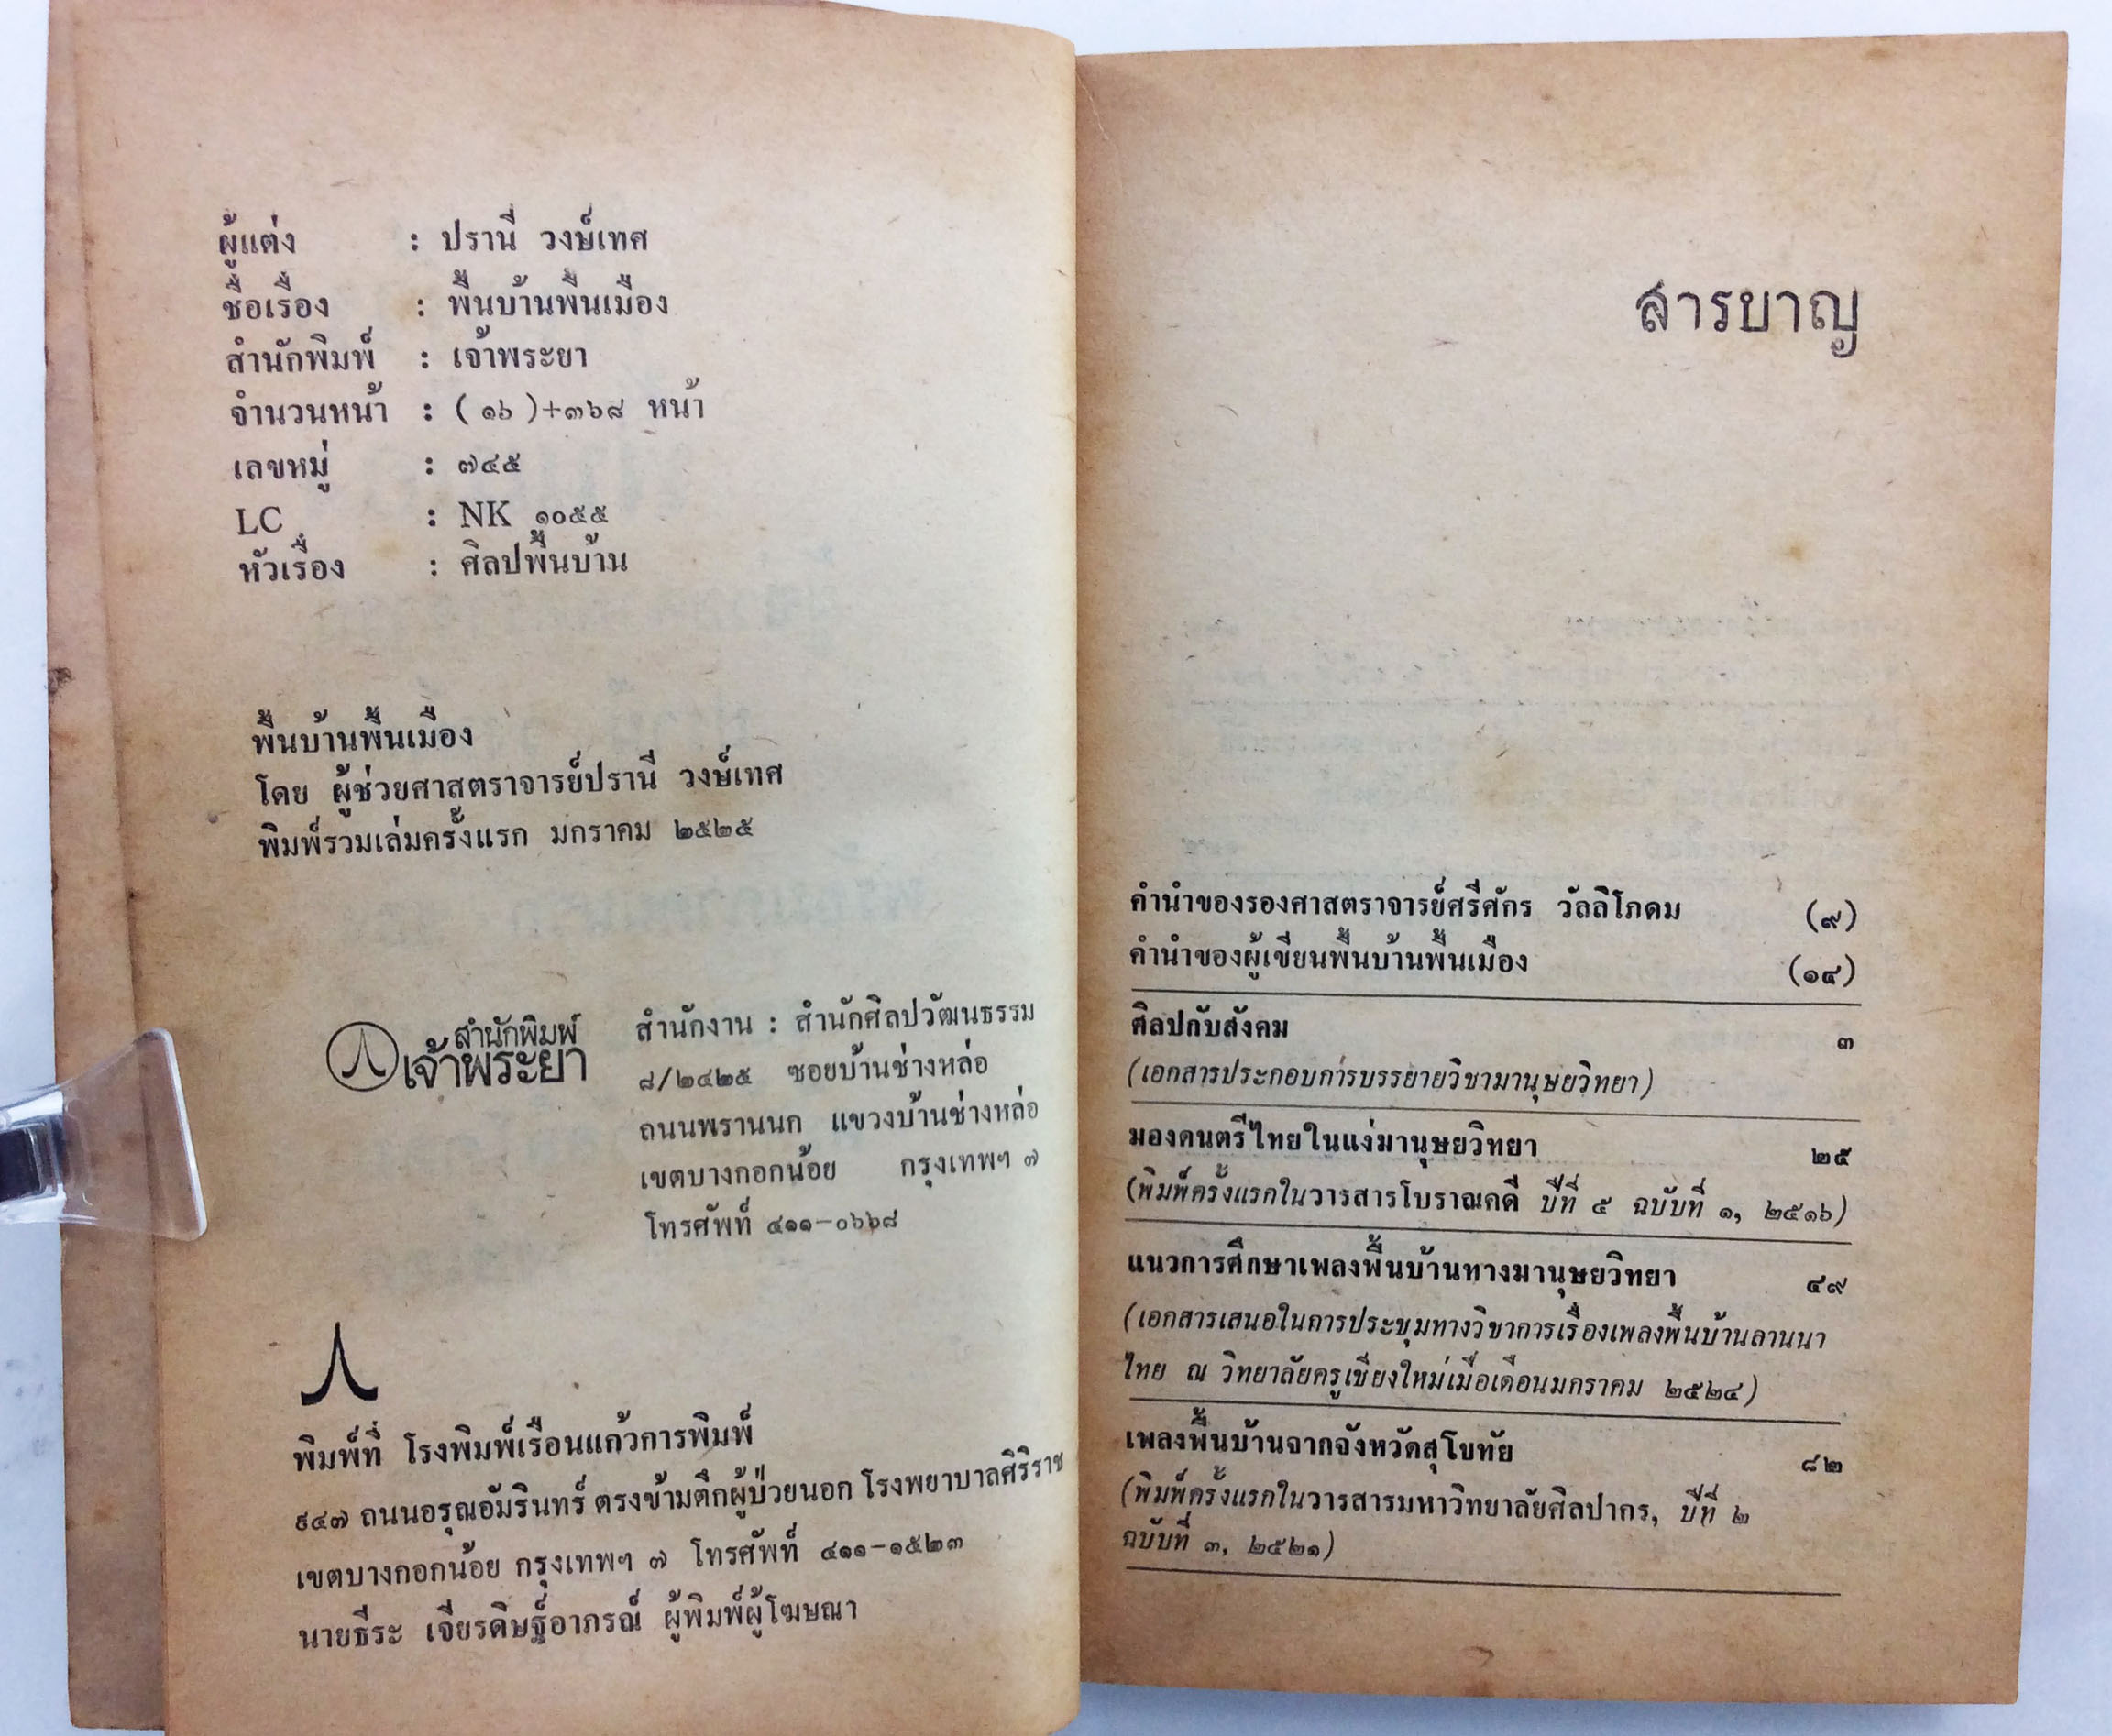 ผู้แต่ง : ปรานี วงษ์เทศ
ชื่อเรื่อง : พื้นบ้านพื้นเมือง
สำนักพิมพ์ : เจ้าพระยา
จำนวนหน้า : (๑๖)+๓๖๘ หน้า
เลขหมู่ : ๗๔๕
LC : NK ๑๐๕๕
หัวเรื่อง : ศิลปพื้นบ้าน
พื้นบ้านพื้นเมือง
โดย ผู้ช่วยศาสตราจารย์ปรานี วงษ์เทศ
พิมพ์รวมเล่มครั้งแรก มกราคม ๒๕๒๕
สำนักพิมพ์
เจ้าพระยา
สำนักงาน : สำนักศิลปวัฒนธรรม
๘/๒๔๒๕ ซอยบ้านช่างหล่อ
ถนนพรานนก แขวงบ้านช่างหล่อ
เขตบางกอกน้อย กรุงเทพฯ ๗
โทรศัพท์ ๔๑๑-๐๖๖๘
พิมพ์ที่ โรงพิมพ์เรือนแก้วการพิมพ์
๙๔๗ ถนนอรุณอัมรินทร์ ตรงข้ามตึกผู้ป่วยนอก โรงพยาบาลศิริราช
เขตบางกอกน้อย กรุงเทพฯ ๗ โทรศัพท์ ๔๑๑-๑๕๒๓
นายธีระ เจียรดิษฐ์อาภรณ์ ผู้พิมพ์ผู้โฆษณา
สารบาญ
คำนำของรองศาสตราจารย์ศรีศักร วัลลิโภดม (๙)
คำนำของผู้เขียนพื้นบ้านพื้นเมือง (๑๔)
ศิลปกับสังคม ๓
(เอกสารประกอบการบรรยายวิชามานุษยวิทยา)
มองดนตรีไทยในแง่มานุษยวิทยา ๒๕
(พิมพ์ครั้งแรกในวารสารโบราณคดี ปีที่ ๕ ฉบับที่ ๑, ๒๕๑๖)
แนวการศึกษาเพลงพื้นบ้านทางมานุษยวิทยา ๔๙
(เอกสารเสนอในการประชุมทางวิชาการเรื่องเพลงพื้นบ้านลานนา
ไทย ณ วิทยาลัยครูเชียงใหม่เมื่อเดือนมกราคม ๒๕๒๔)
เพลงพื้นบ้านจากจังหวัดสุโขทัย ๘๒
(พิมพ์ครั้งแรกในวารสารมหาวิทยาลัยศิลปากร, ปีที่ ๒
ฉบับที่ ๓, ๒๕๒๑)